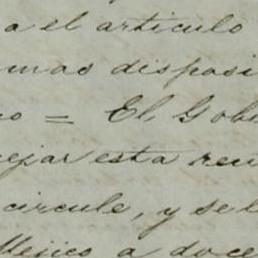 a el articulo
mas disposi
o = El Gob
ejar esta reu
circule, y se l
Mejico a doce